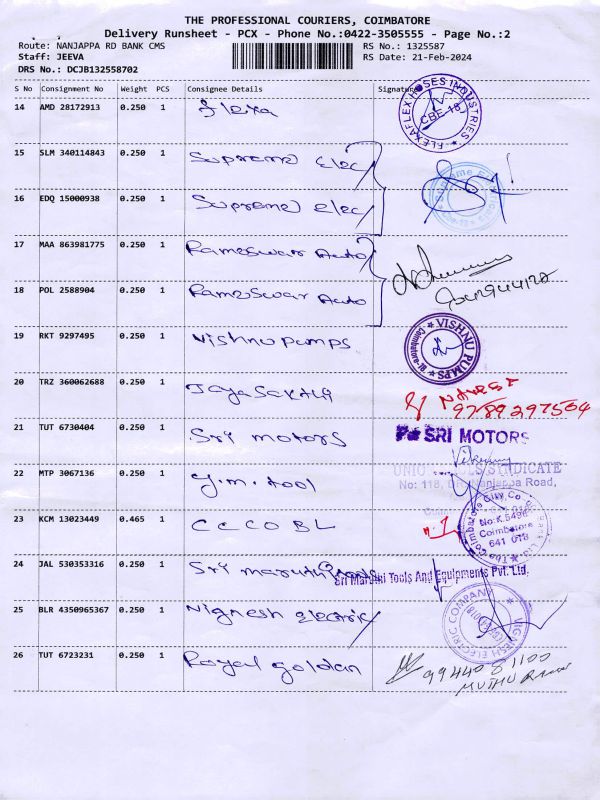 THE PROFESSIONAL COURIERS, COIMBATORE
Delivery Runsheet - PCX - Phone No.:0422-3505555 - Page No.:2
Route: NANJAPPA RD BANK CMS RS No.: 1325587
Staff: JEEVA RS Date: 21-Feb-2024
DRS No.: DCJB132558702
S No Consignment No Weight PCS Consignee Details Signature
14 AMD 28172913 0.250 1 flexa
FLEXAFLEX HOSES INDUSTRIES
CBE-18
15 SLM 340114843 0.250 1 Supreme elec
16 EDQ 15000938 0.250 1 Supreme elec
17 MAA 863981775 0.250 1 Rameswar Auto
18 POL 2588904 0.250 1 Rameswar Auto
19 RKT 9297495 0.250 1 Vishnu pumps
VISHNU PUMPS
20 TRZ 360062688 0.250 1 Jaya Sakthi
9789297564
21 TUT 6730404 0.250 1 Sri motors
For SRI MOTORS
22 MTP 3067136 0.250 1 y.m. tool
SYNDICATE
No: 118, Nanjappa Road,
23 KCM 13023449 0.465 1 CCCOBL
The Coimbatore City Co
No:K.5496
Coimbatore
641 018
24 JAL 530353316 0.250 1 Sri maruthi tools
Sri Maruthi Tools And Equipments Pvt. Ltd.
25 BLR 4350965367 0.250 1 Vignesh electric
VIGNESH ELECTRIC COMPANY
26 TUT 6723231 0.250 1 Royal goldan
99440 81100